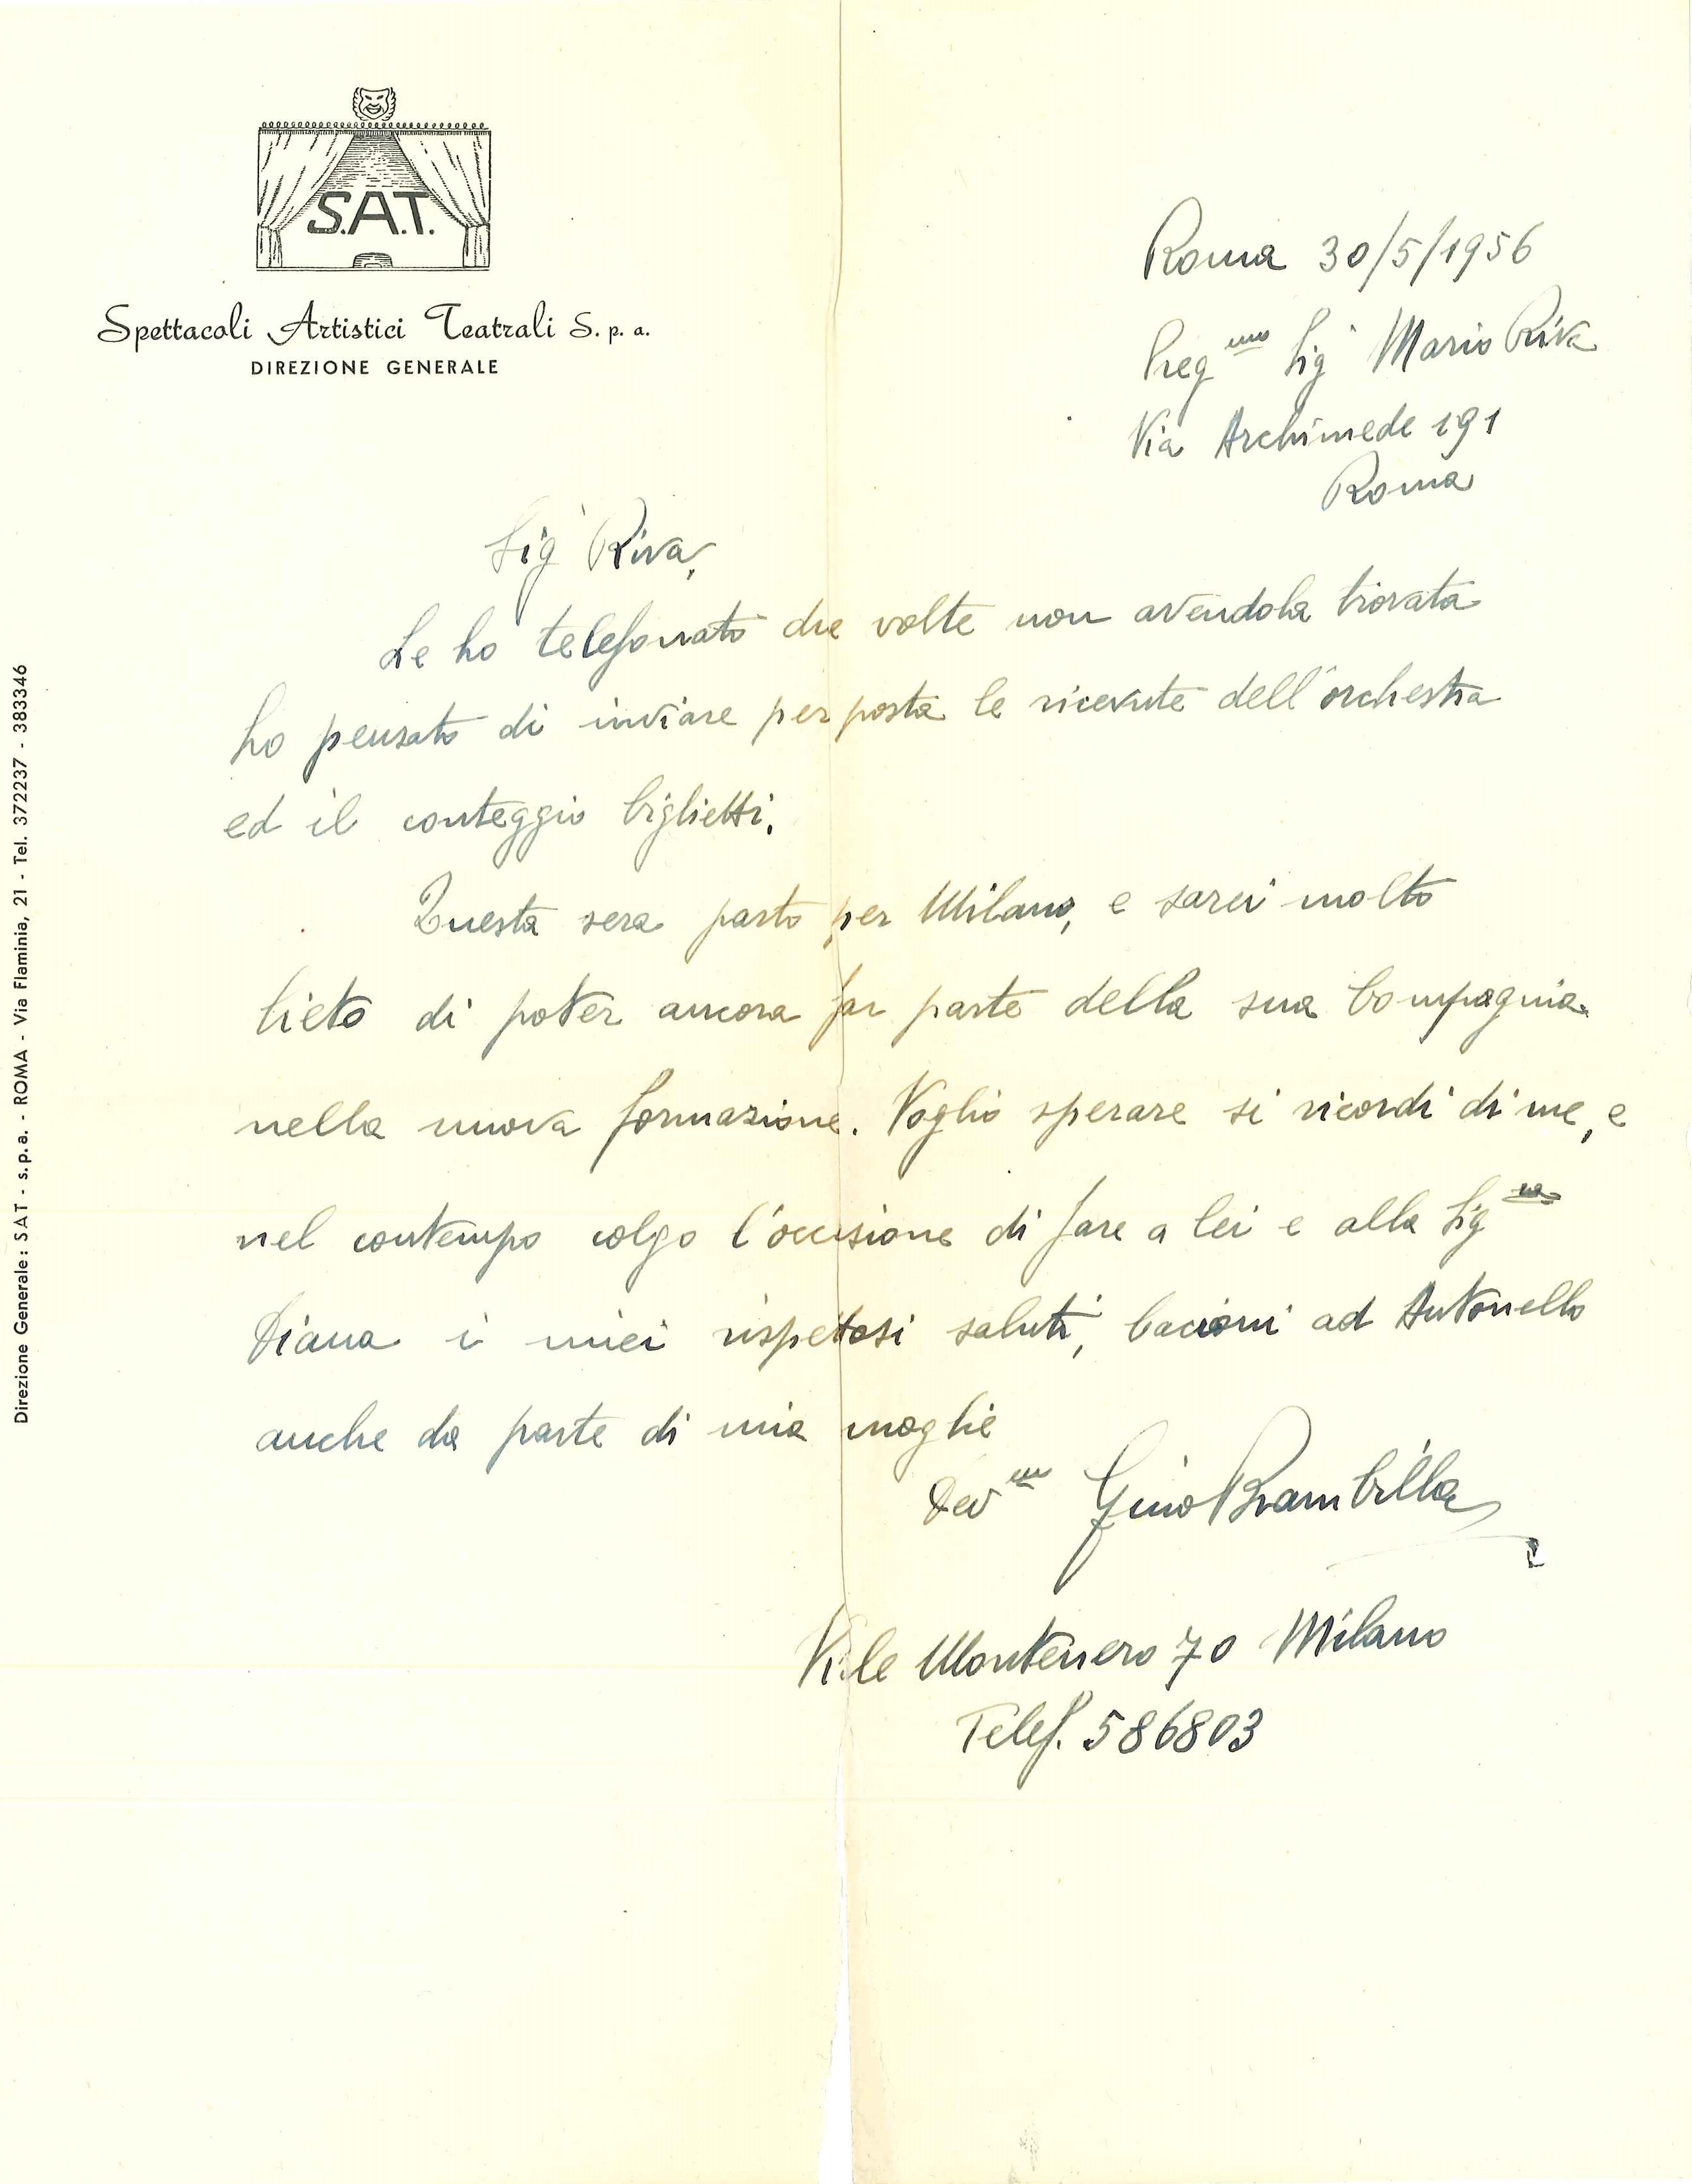 S.A.T.
Spettacoli Artistici Teatrali S. p. a.
DIREZIONE GENERALE
Roma 30/5/1956
Preg.mo Sig Mario Riva
Via Archimede 191
Roma
Sig Riva,
Le ho telefonato due volte non avendola trovata
ho pensato di inviare per posta le ricevute dell'orchestra
ed il conteggio biglietti.
Questa sera parto per Milano, e sarei molto
lieto di poter ancora far parte della sua Compagnia
nella nuova formazione. Voglio sperare si ricordi di me, e
nel contempo colgo l'occasione di fare a lei e alla Sig.ra
Diana i miei rispettosi saluti, bacioni ad Antonello
anche da parte di mia moglie
Dev.mo Gino Brambilla
V.le Montenero 70 Milano
Telef. 586803
Direzione Generale: SAT - s.p.a. - ROMA - Via Flaminia, 21 - Tel. 372237 - 383346